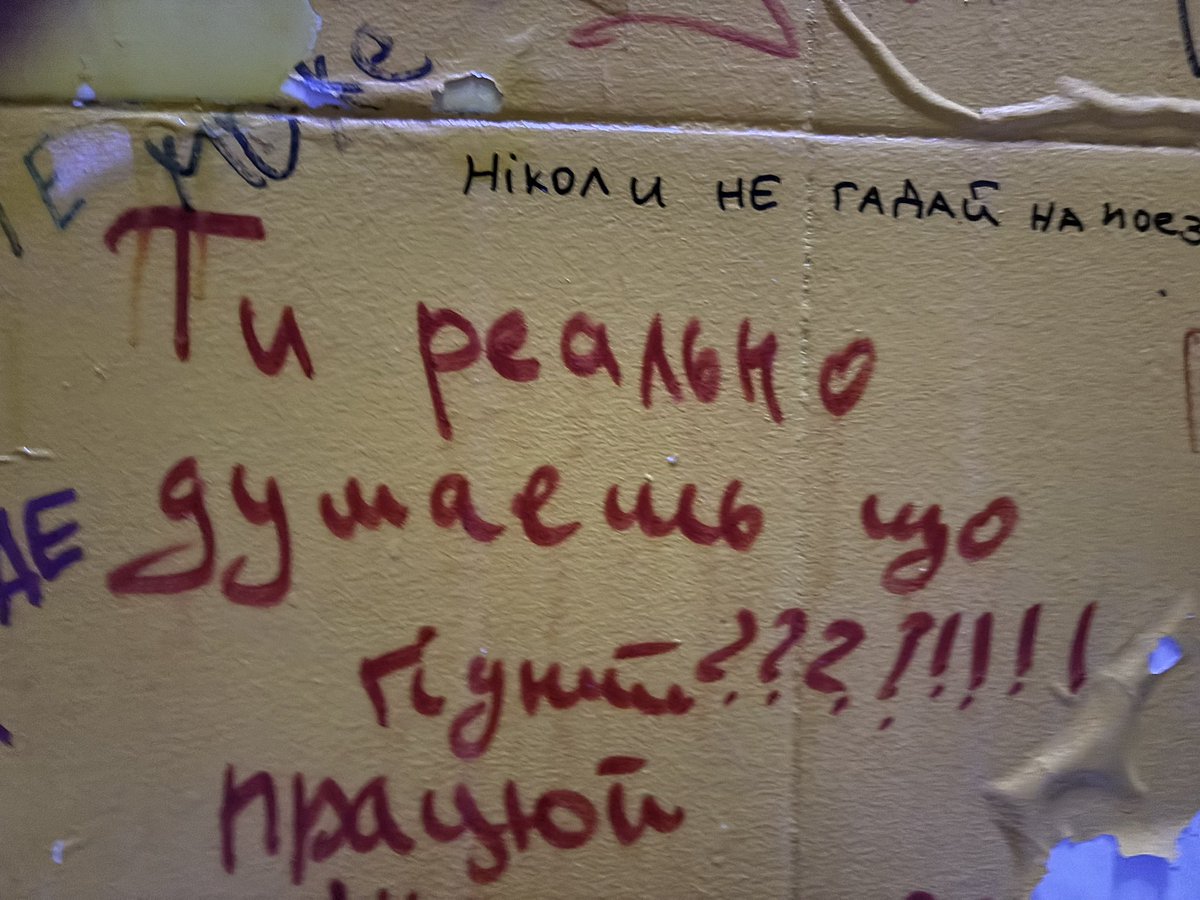 Ніколи не гадай на поез
Ти реально
думаешь що
????!!!!
працюй
ДЕ